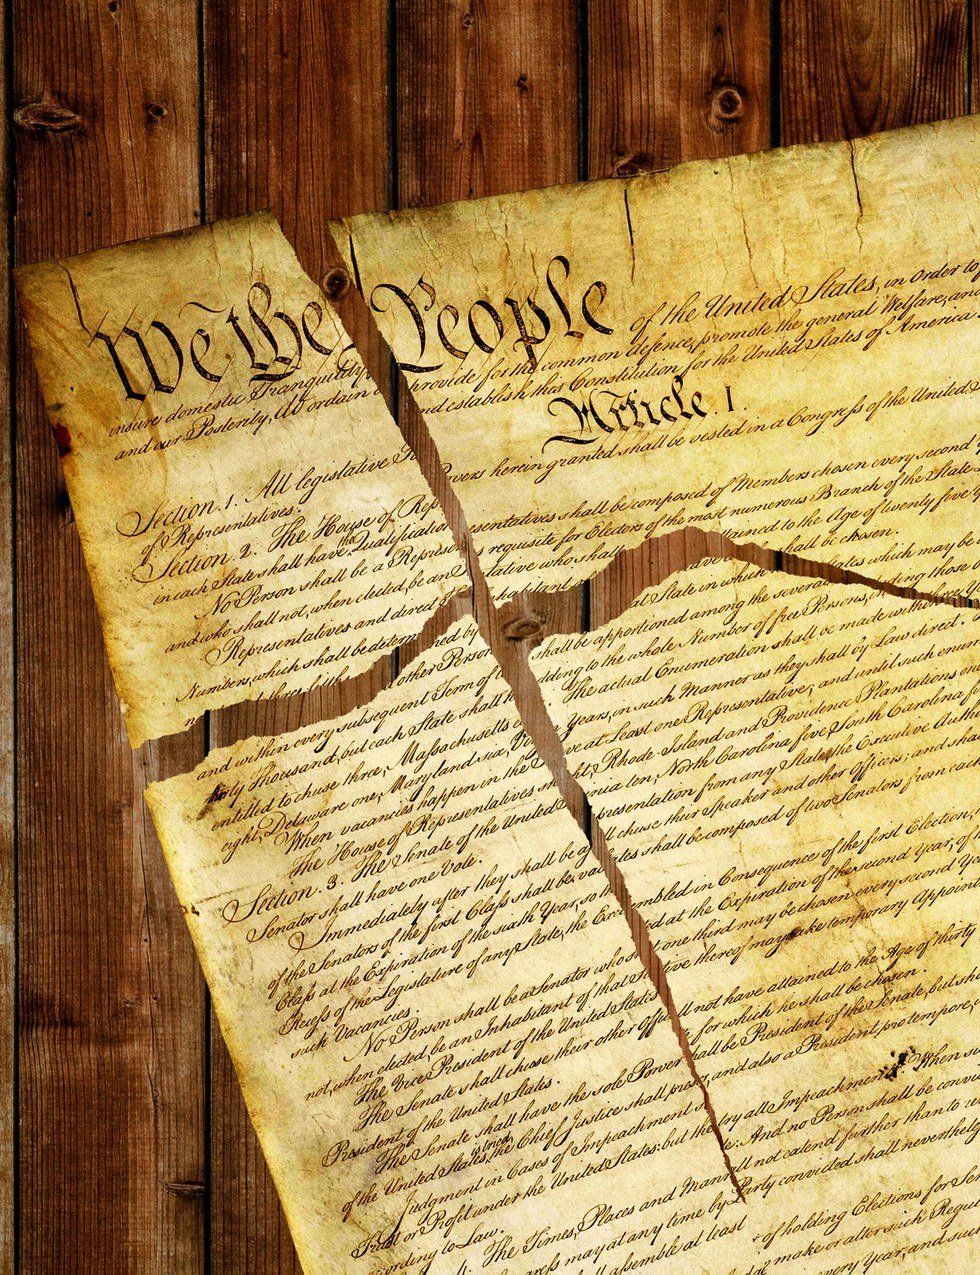 We the People of the United States, in Order to
insure domestic Tranquility provide for the common defence, promote the general Welfare, and
and our Posterity, do ordain and establish this Constitution for the United States of America
Article. I.
Section. 1. All legislative Powers herein granted shall be vested in a Congress of the United
of Representatives.
Section. 2. The House of Representatives shall be composed of Members chosen every second
in each State shall have the Qualifications requisite for Electors of the most numerous Branch of the State
No Person shall be a Representative who shall attained to the Age of twenty five
and who shall not, when elected, be an Inhabitant at State in which shall be chosen.
Representatives and direct shall be apportioned among the several States which may be
Numbers, which shall be determined by to the whole Number of free Persons, those
other Persons. The actual Enumeration shall be made within
and within every subsequent Term of Years, in such Manner as they shall by Law direct.
thirty Thousand, but each State shall have at Least one Representative; and until such
entitled to chuse three, Massachusetts Rhode Island and Providence Plantations
eight, Delaware one, Maryland six, ten, North Carolina five, South Carolina
When vacancies happen in the Representation from any State, the Executive
The House of Representatives shall chuse their Speaker and other Officers; and
Section. 3. The Senate of the United States shall be composed of two Senators from each
Senator shall have one Vote.
Immediately after they shall be assembled in Consequence of the first Election,
of the Senators of the first Class shall be vacated at the Expiration of the second Year, of
Class at the Expiration of the sixth Year, so that one third may be chosen every second
Recess of the Legislature of any State, the Executive thereof may take temporary
such Vacancies.
No Person shall be a Senator who shall not have attained to the Age of thirty
not, when elected, be an Inhabitant of that State for which he shall be chosen.
The Vice President of the United States shall be President of the Senate, but
The Senate shall chuse their other Officers, and also a President pro tempore,
President of the United States.
The Senate shall have the sole Power to try all Impeachments. When
of the United States is tried, the Chief Justice shall preside: And no Person shall be
Judgment in Cases of Impeachment shall not extend further than to
Trust or Profit under the United States: but the Party convicted shall nevertheless
according to Law.
4. The Times, Places and Manner of holding Elections for
may at any time by make or alter such
shall assemble at least every Year, and such